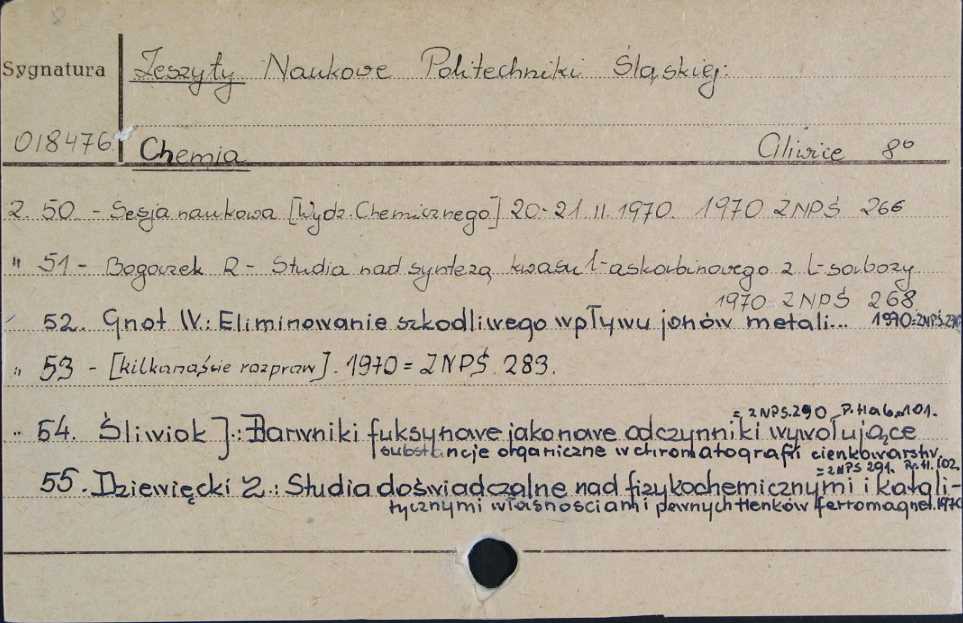 Sygnatura
Zeszyty Naukowe Politechniki Śląskiej:
018476 Chemia Gliwice 8°
z. 50. - Sesja naukowa [Wydz. Chemicznego] 20-21.II.1970. 1970 ZNPŚ 266
" 51 - Bogoczek R - Studia nad syntezą kwasu l-askorbinowego z L-sorbozy
1970 ZNPŚ 268
52. Gnot W.: Eliminowanie szkodliwego wpływu jonów metali... 1970=ZNPŚ.
" 53 - [kilkanaście rozpraw]. 1970 = ZNPŚ. 283.
= ZNPS.290 P.Hab.101.
" 54. Śliwiok J.: Barwniki fuksynowe jako nowe odczynniki wywołujące
substancje organiczne w chromatografii cienkowarstw.
= ZNPS 291. Pr.H.102.
55. Dziewięcki Z.: Studia doświadczalne nad fizykochemicznymi i katali-
tycznymi własnosciami pewnych tlenków ferromagnet. 1970